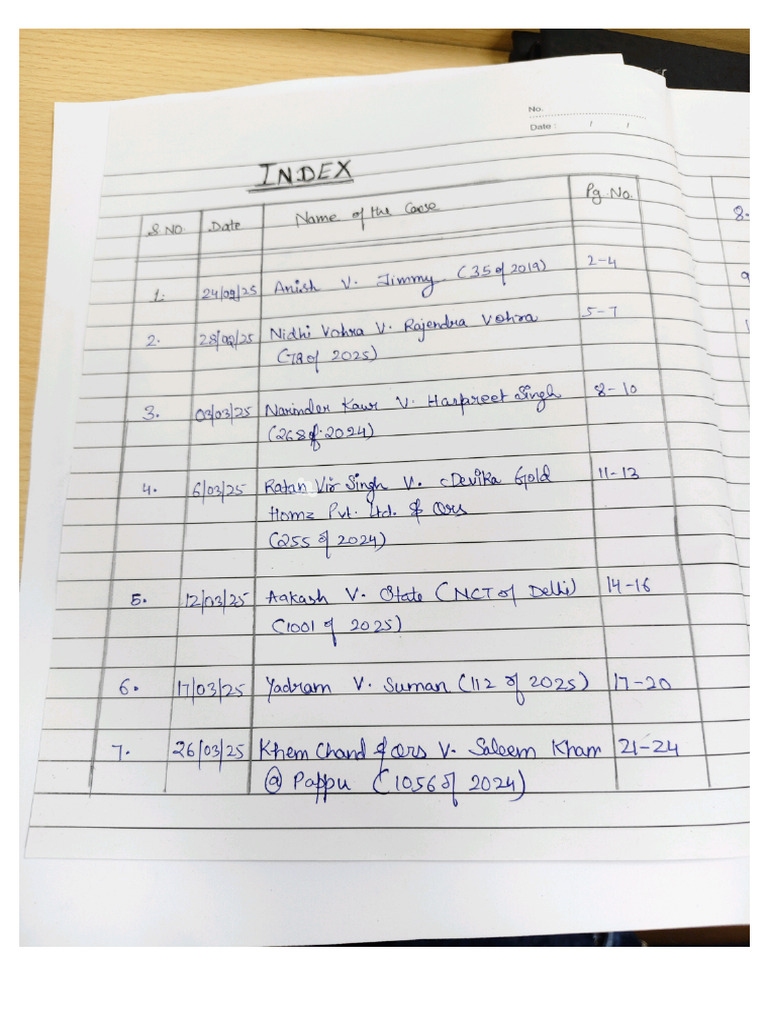 No.
Date : / /
INDEX
S.NO. Date Name of the Case Pg. No.
1. 24/02/25 Anish V. Jimmy (35 of 2019) 2-4
2. 28/02/25 Nidhi Vohra V. Rajendra Vohra 5-7
(78 of 2025)
3. 03/03/25 Narinder Kaur V. Harpreet Singh 8-10
(268 of 2024)
4. 6/03/25 Ratan Vir Singh V. Devika Gold 11-13
Homz Pvt. Ltd. & Ors
(255 of 2024)
5. 12/03/25 Aakash V. State (NCT of Delhi) 14-16
(1001 of 2025)
6. 17/03/25 Yadram V. Suman (112 of 2025) 17-20
7. 26/03/25 Khem Chand & Ors V. Saleem Kham 21-24
@ Pappu (1056 of 2024)
8.
9
1